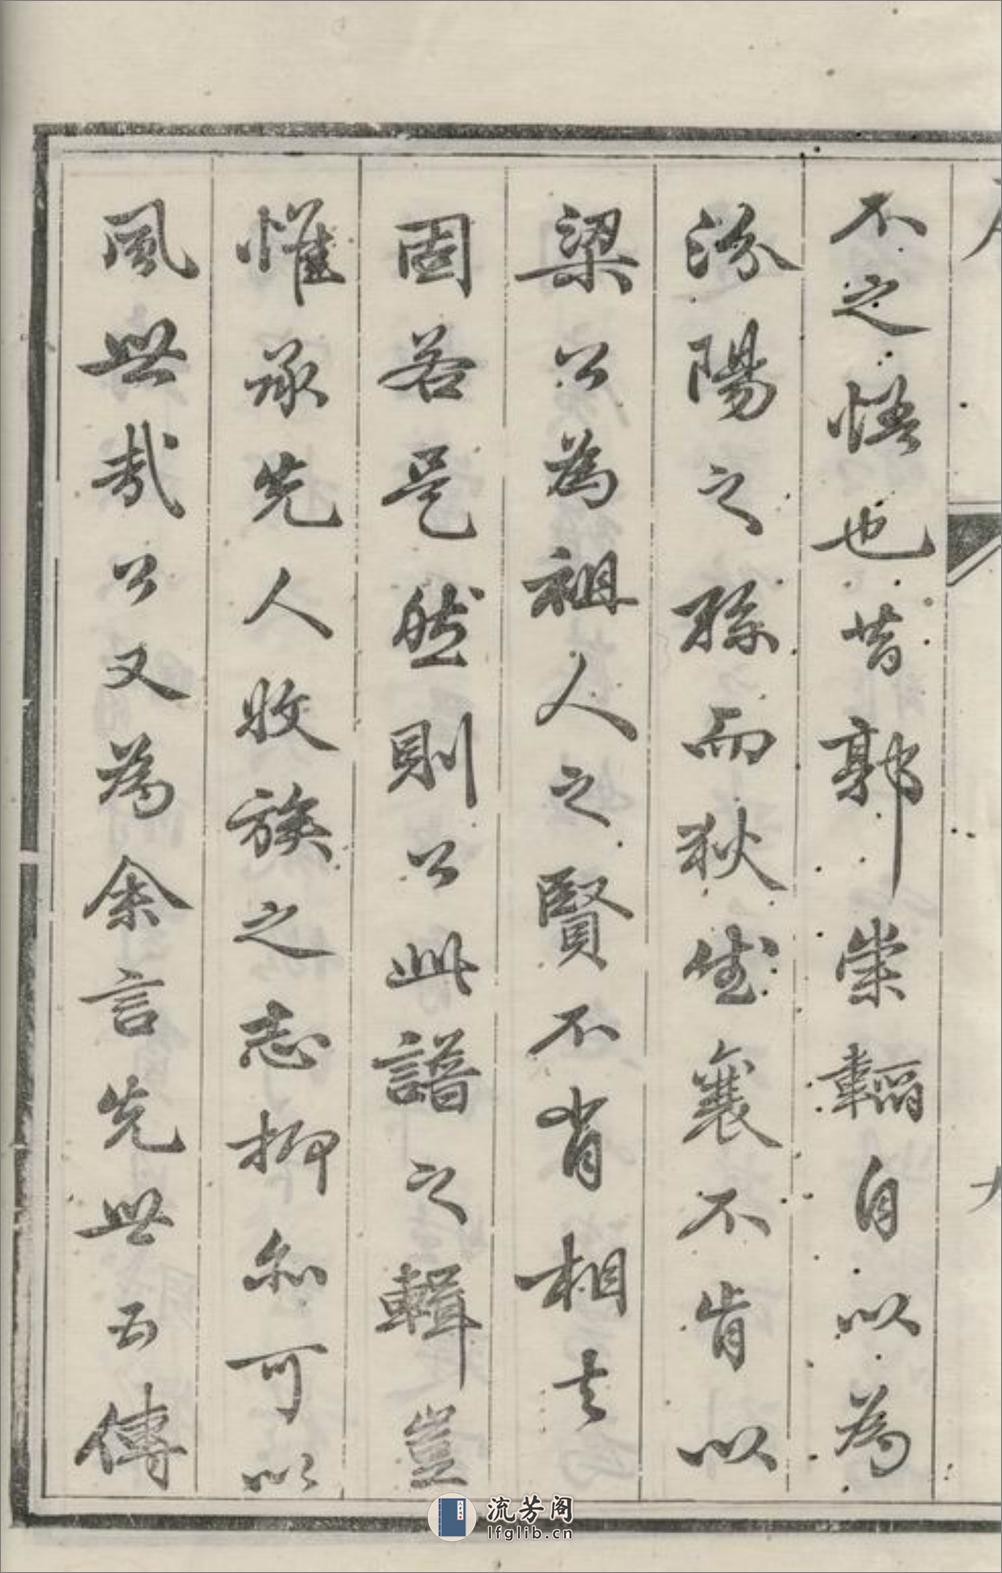 不之悟也昔郭崇韜自以為
汾陽之孫而狄武襄不肯以
梁公為祖人之賢不肖相去
固若是然則公此譜之輯豈
惟承先人收族之志抑亦可以
風世哉公又為余言先世五傳
流芳阁
lfglib.cn